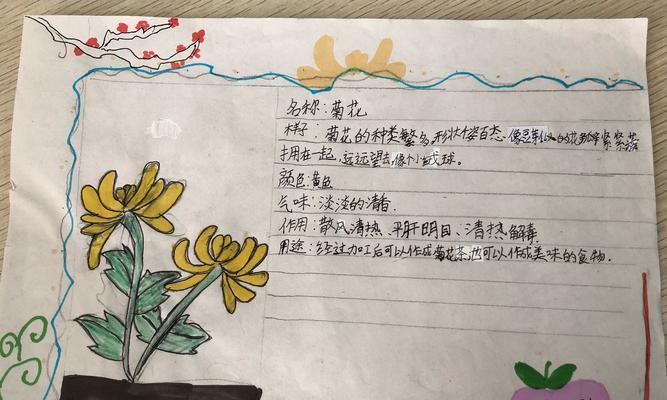 名称：菊花
样子：菊花的种类繁多，形状千姿百态，像豆芽似的花瓣紧紧簇
拥在一起，远远望去像小绒球。
颜色：黄色
气味：淡淡的清香。
作用：散风清热、平肝明目、清热解毒
用途：经过加工后可以作成菊花茶也可以作成美味的食物。